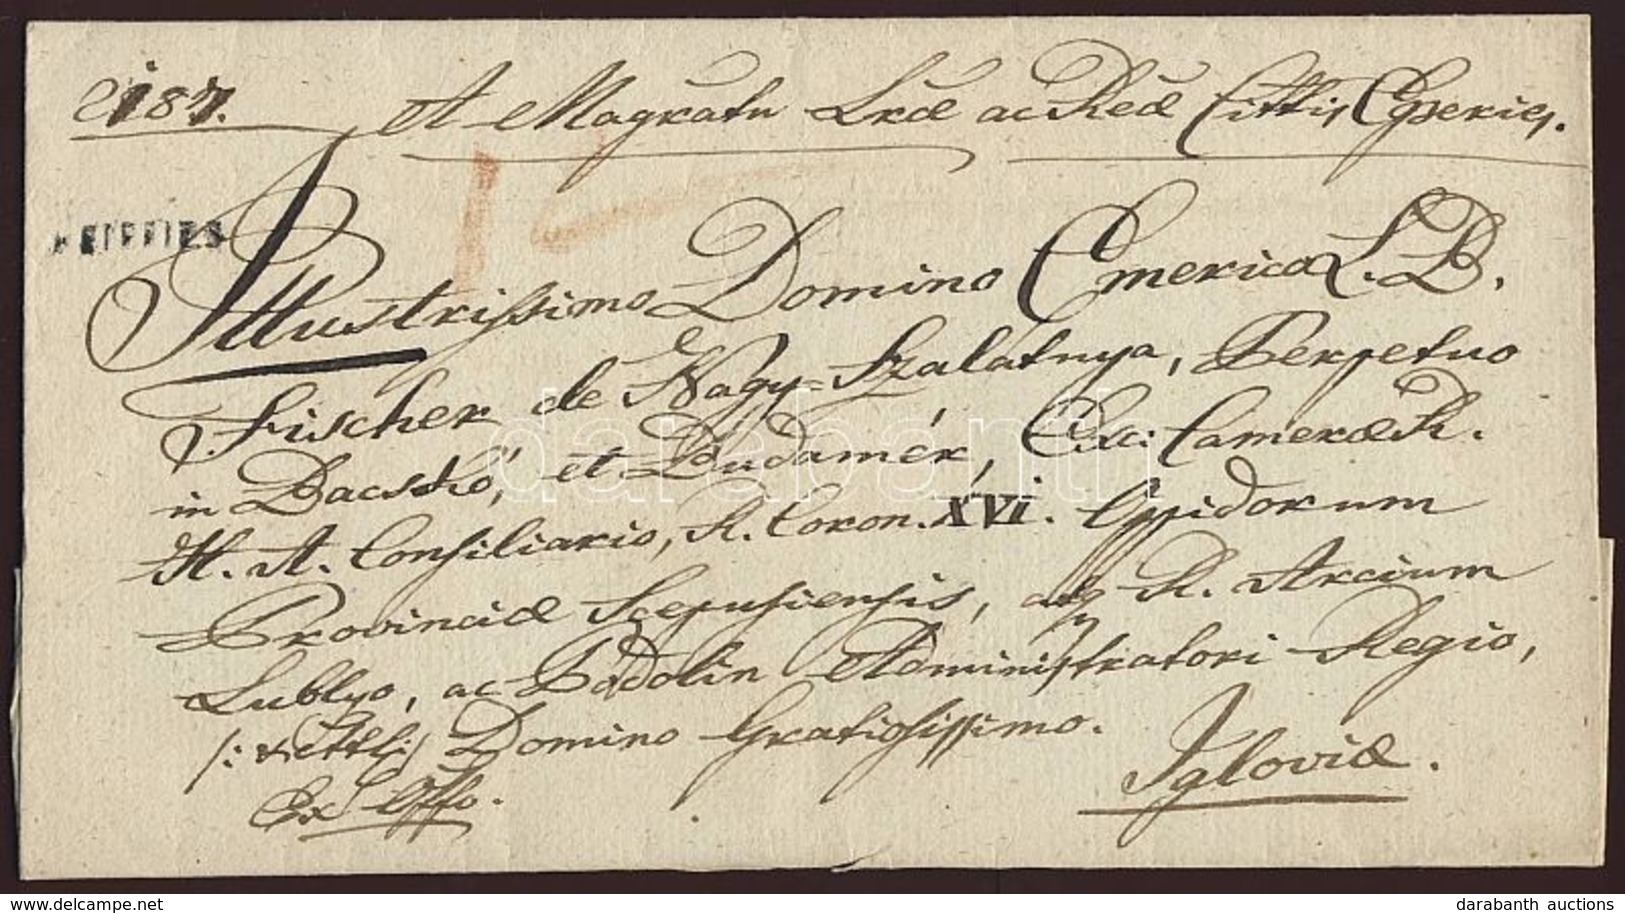 A Magratu Lrae ac Reae Cittis Epperies.
EPERIES
Illustrissimo Domino Emerico L. B.
Fischer de Nagy-Szalátnya, Perpetuo
in Bacskó, et Budamér, Exc: Camerae R.
H. A. Consiliario, R. Coron. XVI. Oppidorum
Provinciae Scepusiensis, atq R. Arcium
Lublyo, ac Podolin Administratori Regio,
/: titttl: / Domino Gratiosissimo.
Ex Offo.
Igloviae.
darabanth
delcampe.net
darabanth auctions